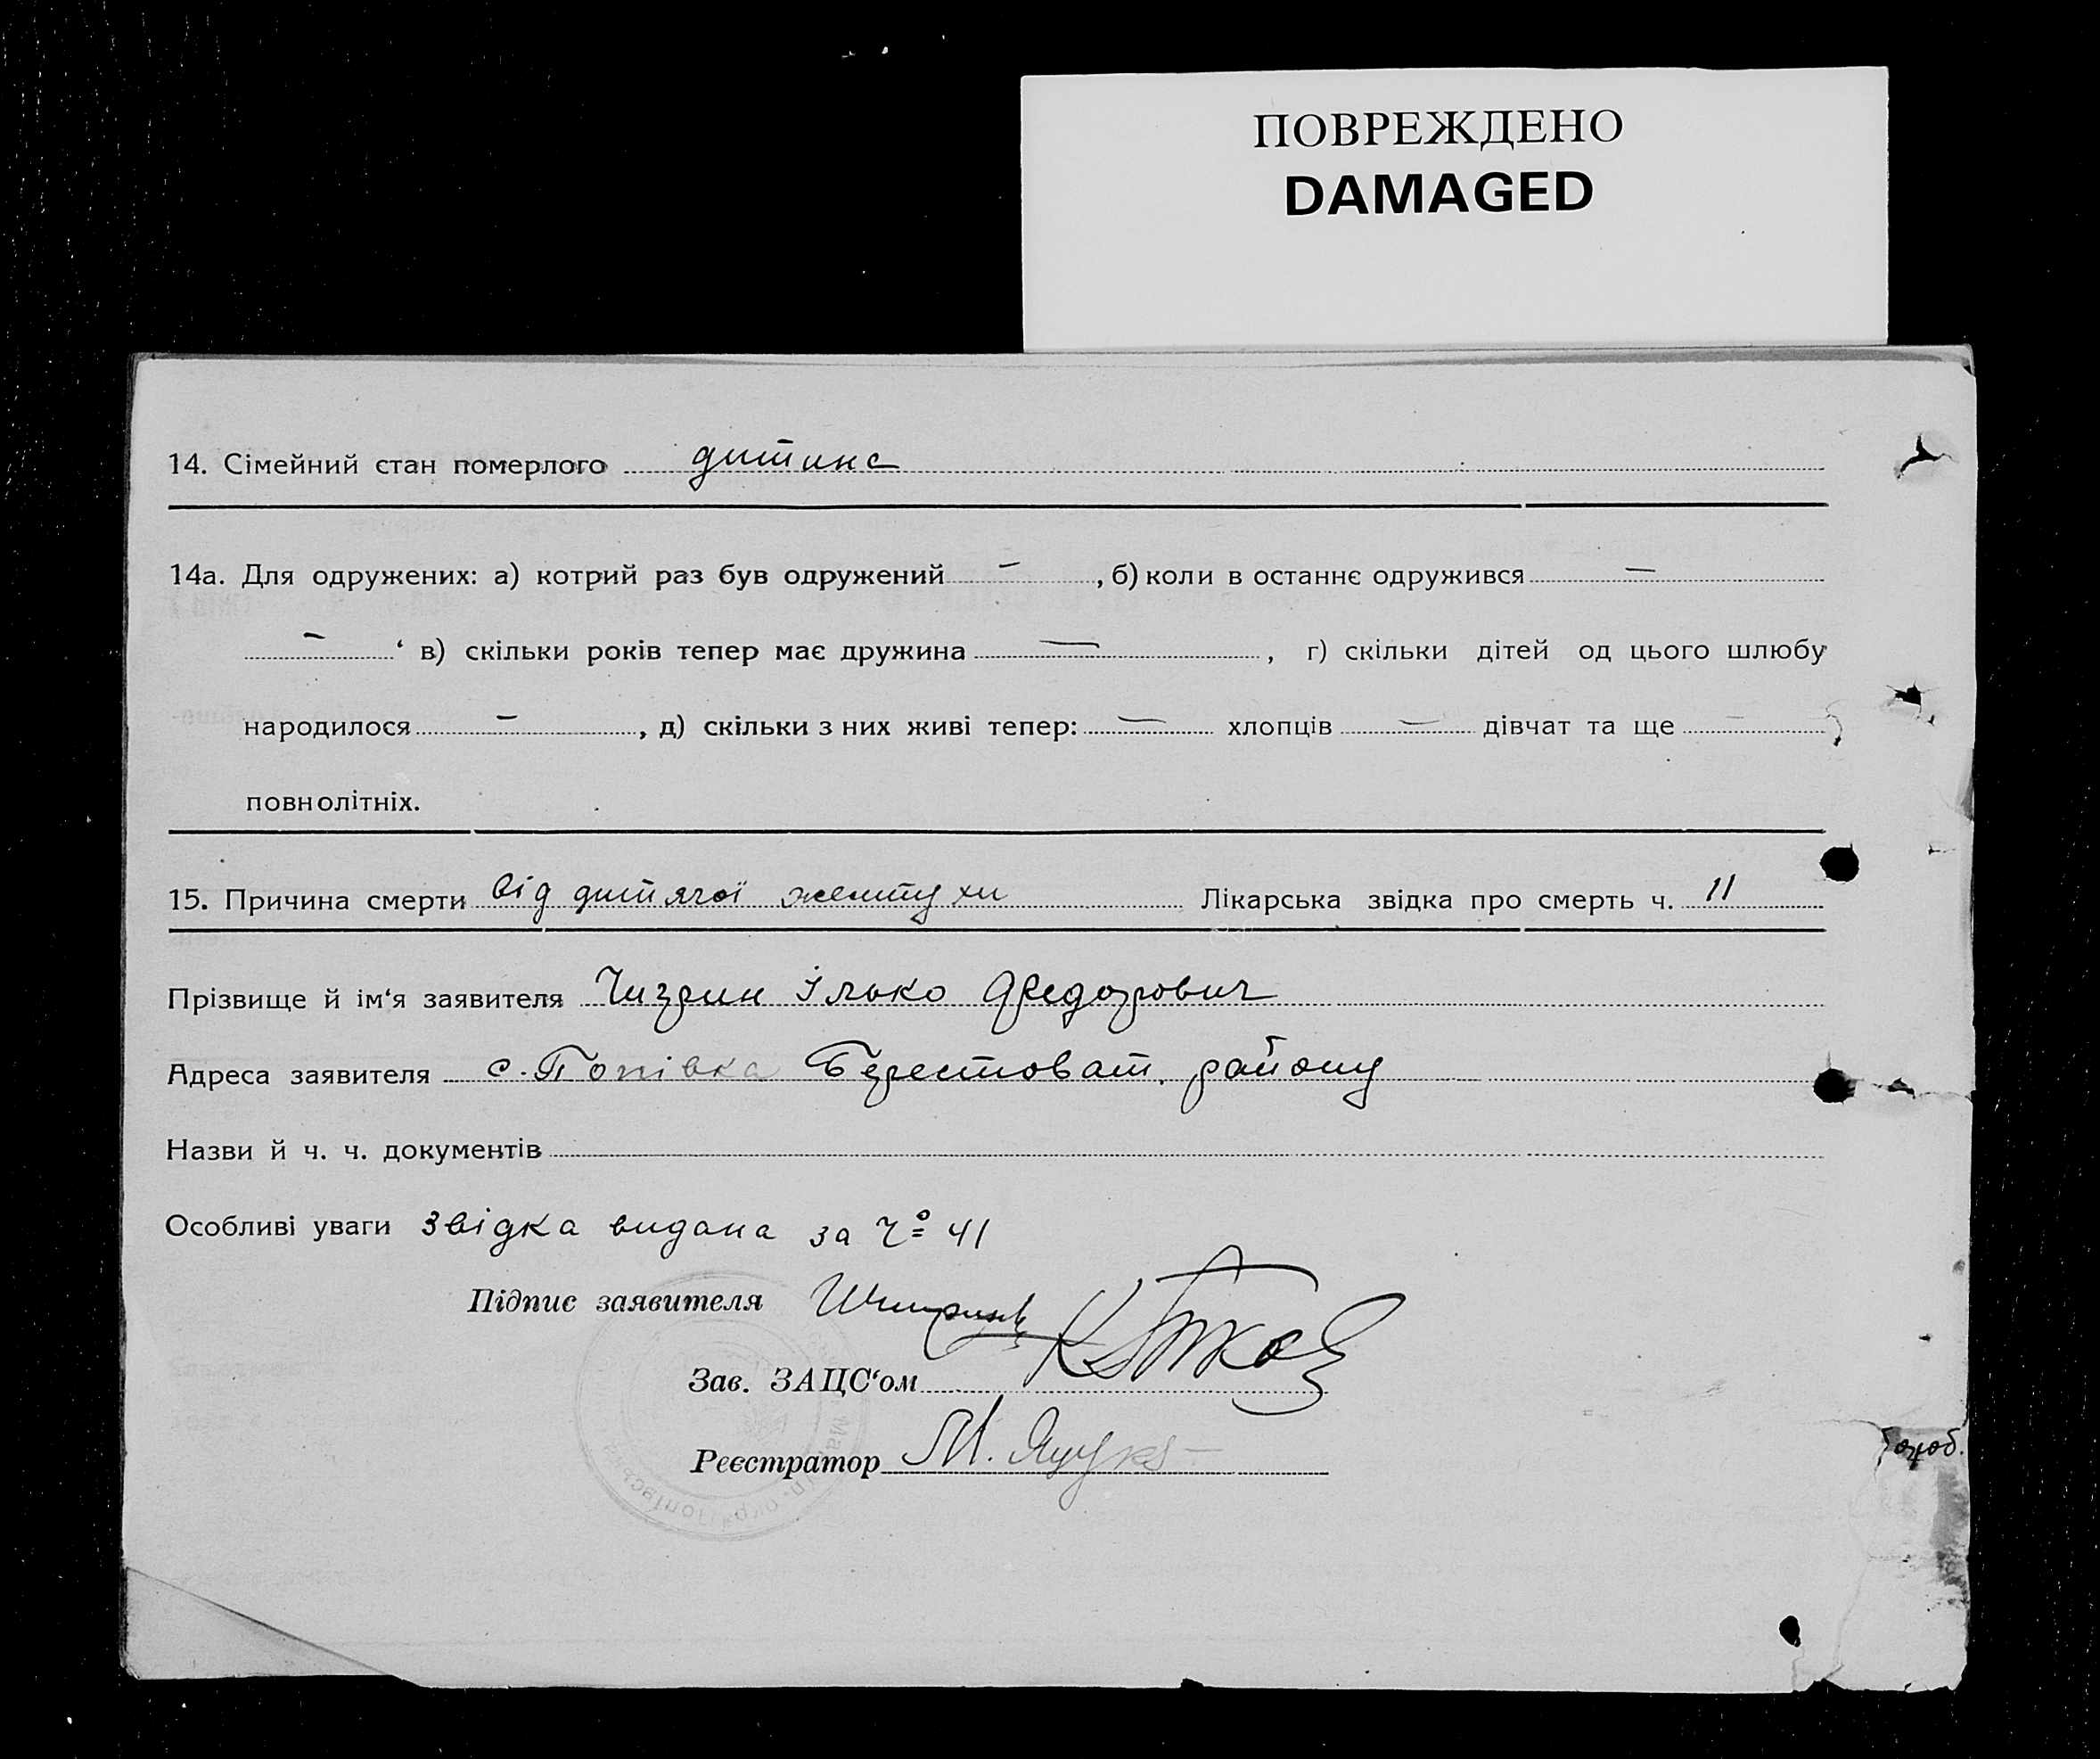 ПОВРЕЖДЕНО
DAMAGED
14. Сімейний стан померлого дитина
14а. Для одружених: а) котрий раз був одружений — , б) коли в останнє одружився —
— ‘ в) скільки років тепер має дружина — , г) скільки дітей од цього шлюбу
народилося — , д) скільки з них живі тепер: — хлопців — дівчат та ще —
повнолітніх.
15. Причина смерти від дитячої жовтухи Лікарська звідка про смерть ч. 11
Прізвище й ім‘я заявителя Ілько Федорович
Адреса заявителя с. Попівка Берестоват. району
Назви й ч. ч. документів
Особливі уваги Звідка видана за Ч° 41
Підпис заявителя
Зав. ЗАЦС‘ом
Реєстратор М.